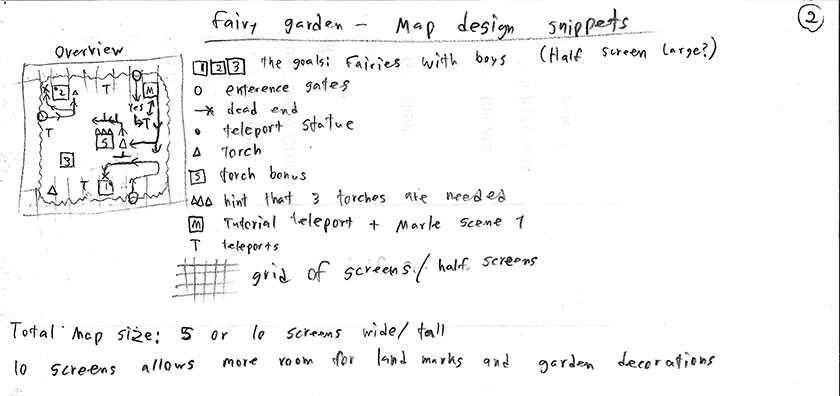 Fairy garden - Map design snippets
2
Overview
1 2 3 the goals: Fairies with boys (Half screen large?)
O enterence gates
dead end
teleport statue
Torch
5 torch bonus
hint that 3 torches are needed
M Tutorial teleport + Marle scene 1
T teleports
grid of screens / half screens
2 T M
Yes
T T
5
3
T 1
Total map size: 5 or 10 screens wide/tall
10 screens allows more room for land marks and garden decorations